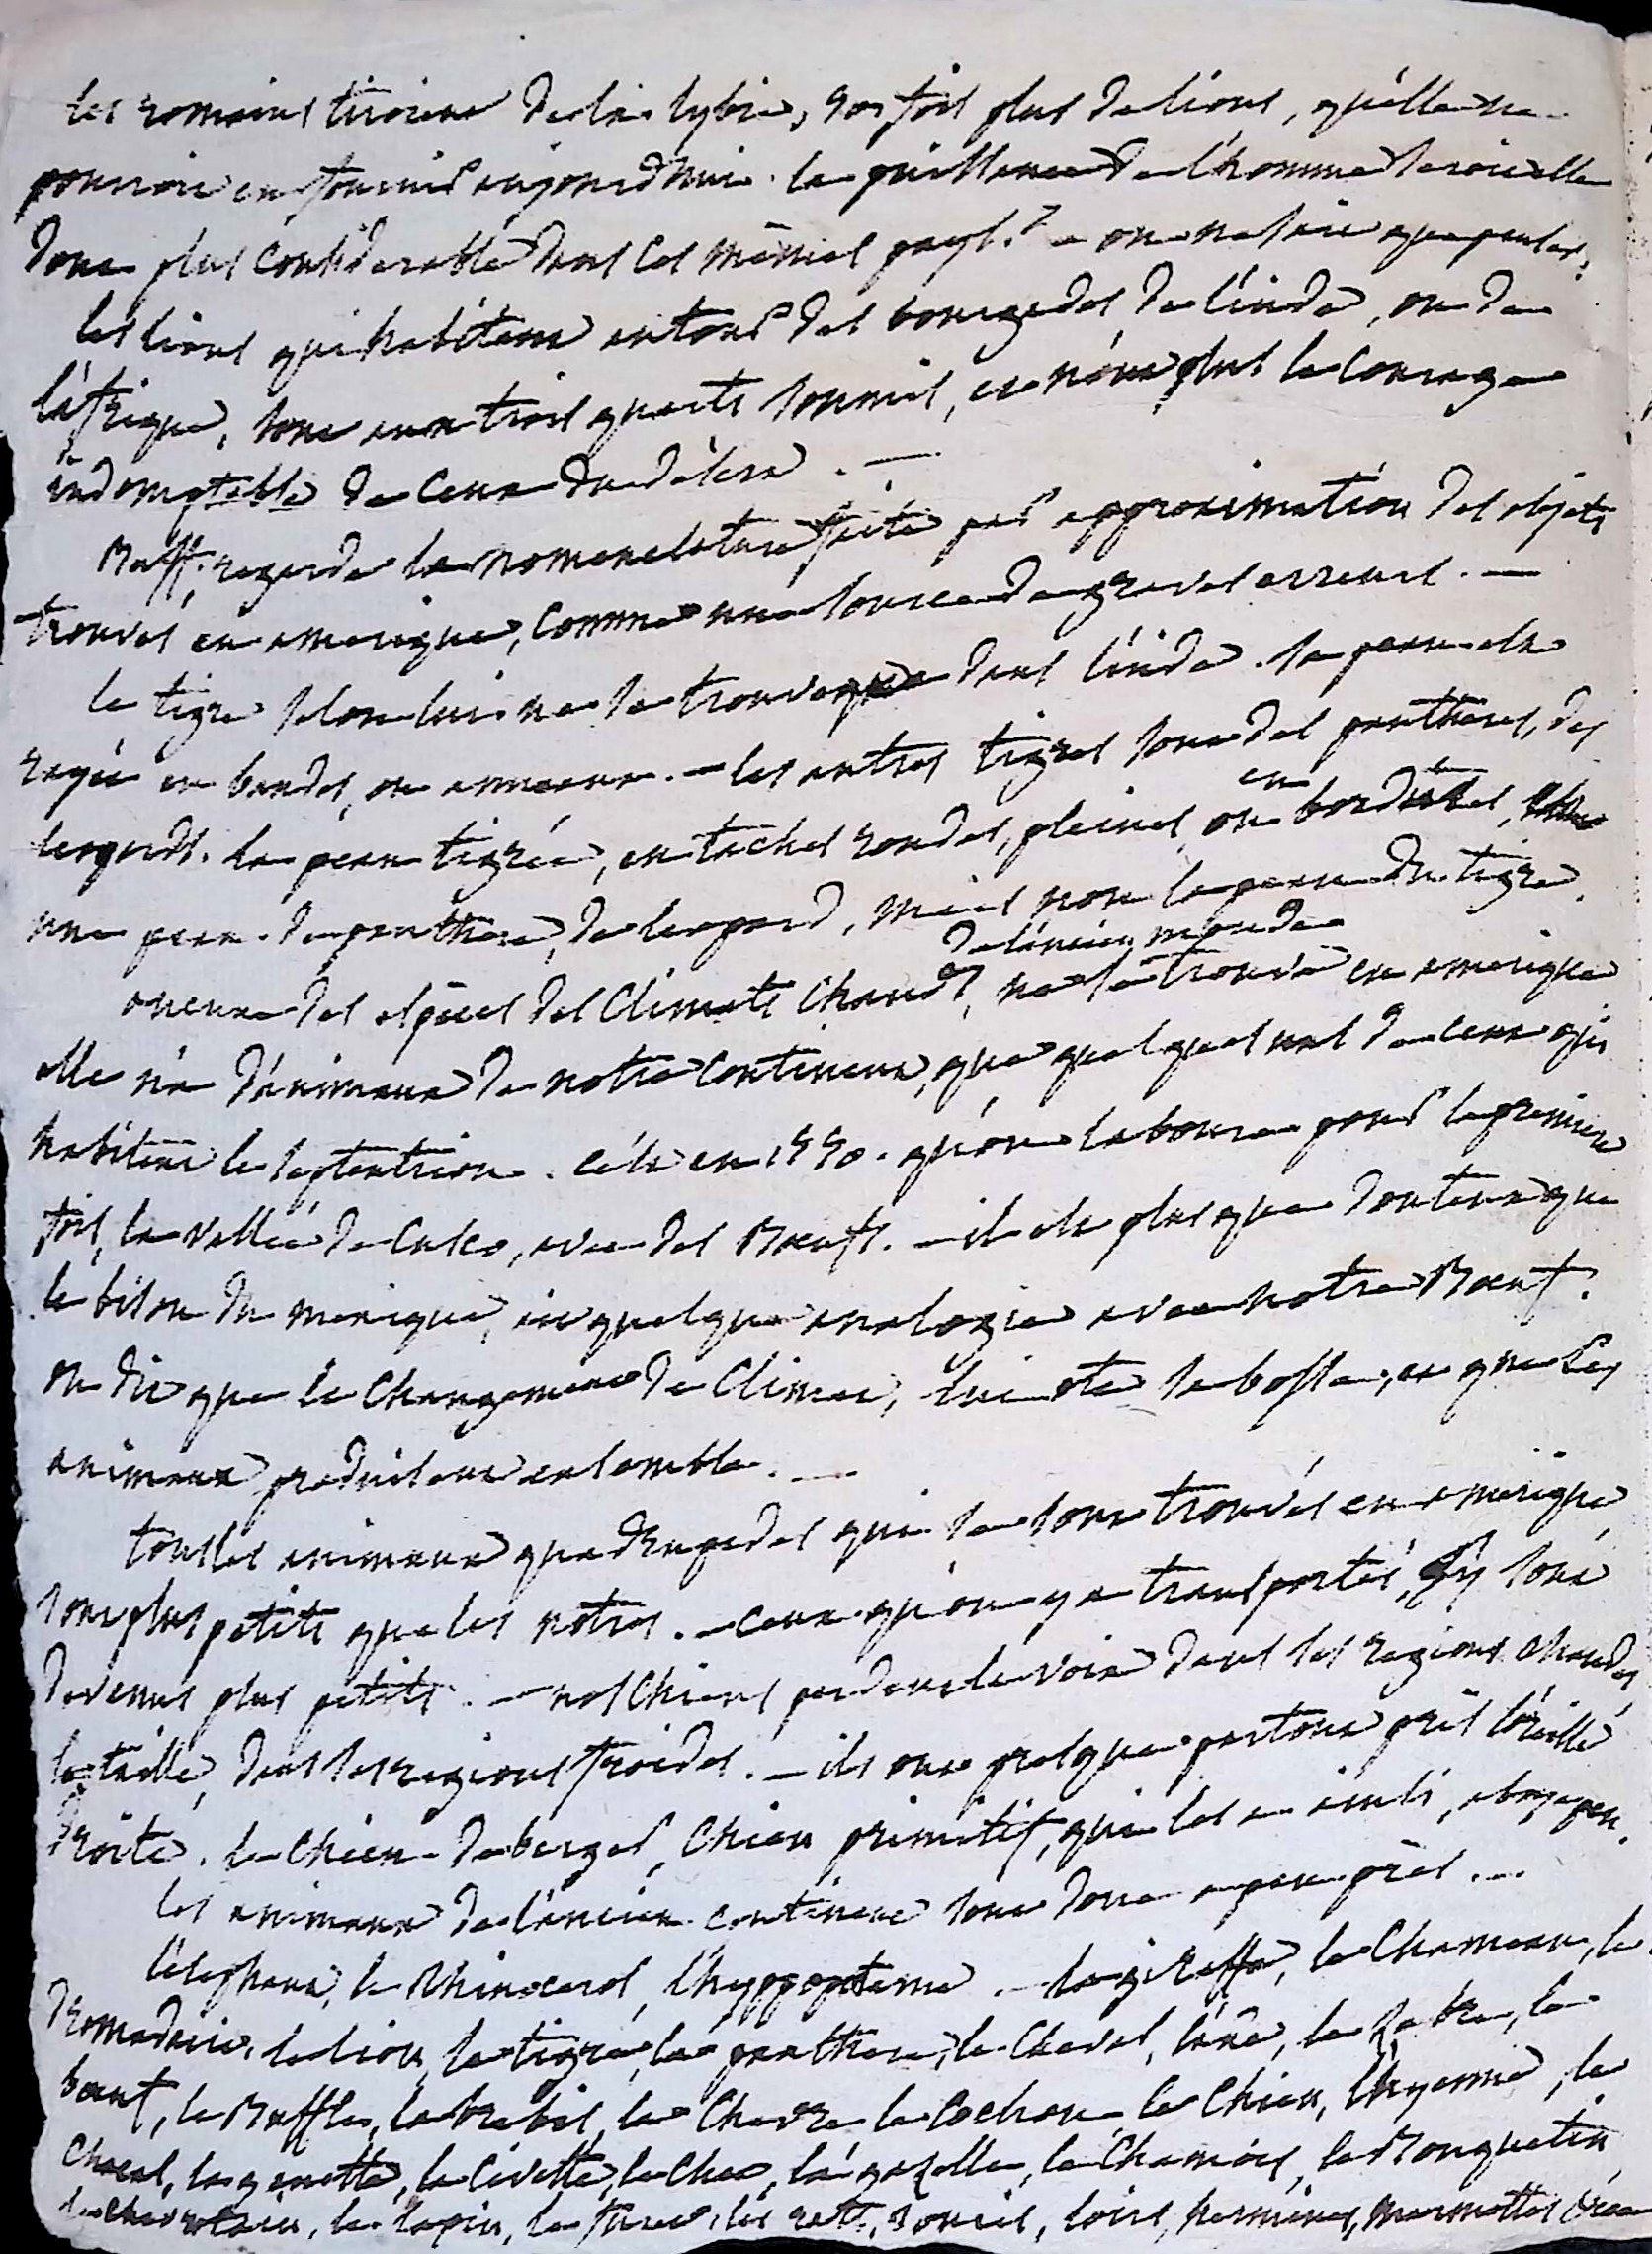 les romains tiroient de la lybie, 50 fois plus de lions, qu'elle ne
pourroit en fournir aujourd'hui. la puissance de l'homme seroit elle
donc plus considerable dans ces mêmes pays ? - on ne sait que penser,
les lions qui habitent autour des bourgades de l'inde, ou de
l'afrique, sont aux trois quarts soumis, et n'ont plus le courage
indomptable de ceux du désert. —
Buff. regarde la nomenclature faite par approximation des objets
trouvés en amerique, comme une source de graves erreurs. —
le tigre selon lui ne se trouve que dans l'inde. sa peau est
rayée en bandes, ou anneaux. - les autres tigres sont des pantheres, des
leopards. la peau tigrée, en taches rondes, pleines, ou en bordures, est
une peau de panthere, de leopard, mais non la peau du tigre.
de l'ancien monde
aucune des especes des climats chauds, ne se trouve en amerique
elle n'a d'animaux de notre continent, que quelques uns de ceux qui
habitent le septentrion. c'est en 1550. qu'on laboura pour la premiere
fois, la vallée de Cusco, avec des Boeufs. - il est plus que douteux que
le bison du mexique, ait quelque analogie avec notre Boeuf.
on dit que le changement de climat, lui ote sa bosse, et que les
animaux produisent ensemble. —
tous les animaux quadrupedes qui se sont trouvés en amerique
sont plus petits que les notres. - ceux qu'on y a transportés, s'y sont
devenus plus petits. - nos chiens perdent la voix dans les regions chaudes
la taille, dans les regions froides. - ils ont presque partout pris l'oreille
droite. le chien de berger, chien primitif, qui les a ainsi, aboye peu.
les animaux de l'ancien continent sont donc a peu près. ...
l'elephant, le Rhinoceros, l'hyppopotame. - la giraffe, le Chameau, le
dromadaire, le lion, le tigre, la panthere, le cheval, l'âne, le zebre, le
boeuf, le Buffle, la brebis, la chevre le cochon le chien, l'hyenne, le
chacal, la genette, la civette, le chat, la gazelle, le Chamois, le Bouquetin
le chevrotain, le lapin, le furet, les rats, souris, loirs, hermines, marmottes